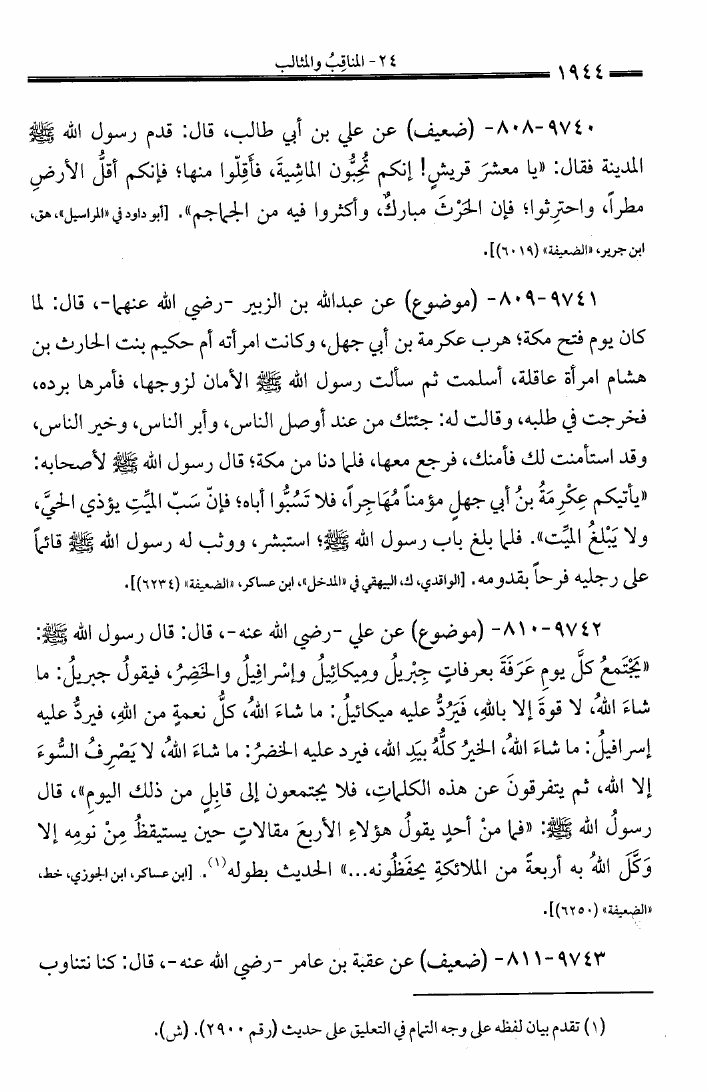 ١٩٤٤
٢٤- المناقِبُ والمثالب
٩٧٤٠-٨٠٨- (ضعيف) عن علي بن أبي طالب، قال: قدم رسول الله ﷺ
المدينة فقال: «يا معشرَ قريشٍ! إنكم تُحِبُّون الماشِيةَ، فَأَقِلّوا منها؛ فإنكم أقلُّ الأرضِ
مطراً، واحترِثوا؛ فإن الحَرْثَ مباركٌ، وأكثروا فيه من الجماجم». [أبو داود في «المراسيل»، هق،
ابن جرير، «الضعيفة» (٦٠١٩)].
٩٧٤١-٨٠٩- (موضوع) عن عبدالله بن الزبير -رضي الله عنهما-، قال: لما
كان يوم فتح مكة؛ هرب عكرمة بن أبي جهل، وكانت امرأته أم حكيم بنت الحارث بن
هشام امرأة عاقلة، أسلمت ثم سألت رسول الله ﷺ الأمان لزوجها، فأمرها برده،
فخرجت في طلبه، وقالت له: جئتك من عند أوصل الناس، وأبر الناس، وخير الناس،
وقد استأمنت لك فأمنك، فرجع معها، فلما دنا من مكة؛ قال رسول الله ﷺ لأصحابه:
«يأتيكم عِكْرِمَةُ بنُ أبي جهلٍ مؤمناً مُهَاجِراً، فلا تَسُبُّوا أباه؛ فإنّ سَبّ الميِّتِ يؤذي الحيَّ،
ولا يَبْلغُ الميِّت». فلما بلغ باب رسول الله ﷺ؛ استبشر، ووثب له رسول الله ﷺ قائماً
على رجليه فرحاً بقدومه. [الواقدي، ك، البيهقي في «المدخل»، ابن عساكر، «الضعيفة» (٦٢٣٤)].
٩٧٤٢-٨١٠- (موضوع) عن علي -رضي الله عنه-، قال: قال رسول الله ﷺ:
«يَجْتَمعُ كلَّ يومِ عَرَفَةَ بعرفاتٍ جِبْريلُ ومِيكائِيلُ وإسْرافِيلُ والخَضِرُ، فيقولُ جبريلُ: ما
شاءَ اللهُ، لا قوةَ إلا باللهِ، فَيَرُدُّ عليه ميكائيلُ: ما شاءَ اللهُ، كلُّ نعمةٍ من اللهِ، فيردُّ عليه
إسرافيلُ: ما شاءَ اللهُ، الخيرُ كلُّهُ بيَدِ الله، فيرد عليه الخضرُ: ما شاءَ اللهُ، لا يَصْرِفُ السُّوءَ
إلا الله، ثم يتفرقونَ عن هذه الكلماتِ، فلا يجتمعون إلى قابِلٍ من ذلك اليومِ»، قال
رسولُ الله ﷺ: «فما منْ أحدٍ يقولُ هؤلاءِ الأربعَ مقالاتٍ حين يستيقظُ مِنْ نومِه إلا
وَكَّلَ اللهُ به أربعةً من الملائكةِ يحفَظُونه...» الحديث بطوله(١). [ابن عساكر، ابن الجوزي، خط،
«الضعيفة» (٦٢٥٠)].
٩٧٤٣-٨١١- (ضعيف) عن عقبة بن عامر -رضي الله عنه-، قال: كنا نتناوب
(١) تقدم بيان لفظه على وجه التمام في التعليق على حديث (رقم ٢٩٠٠). (ش).